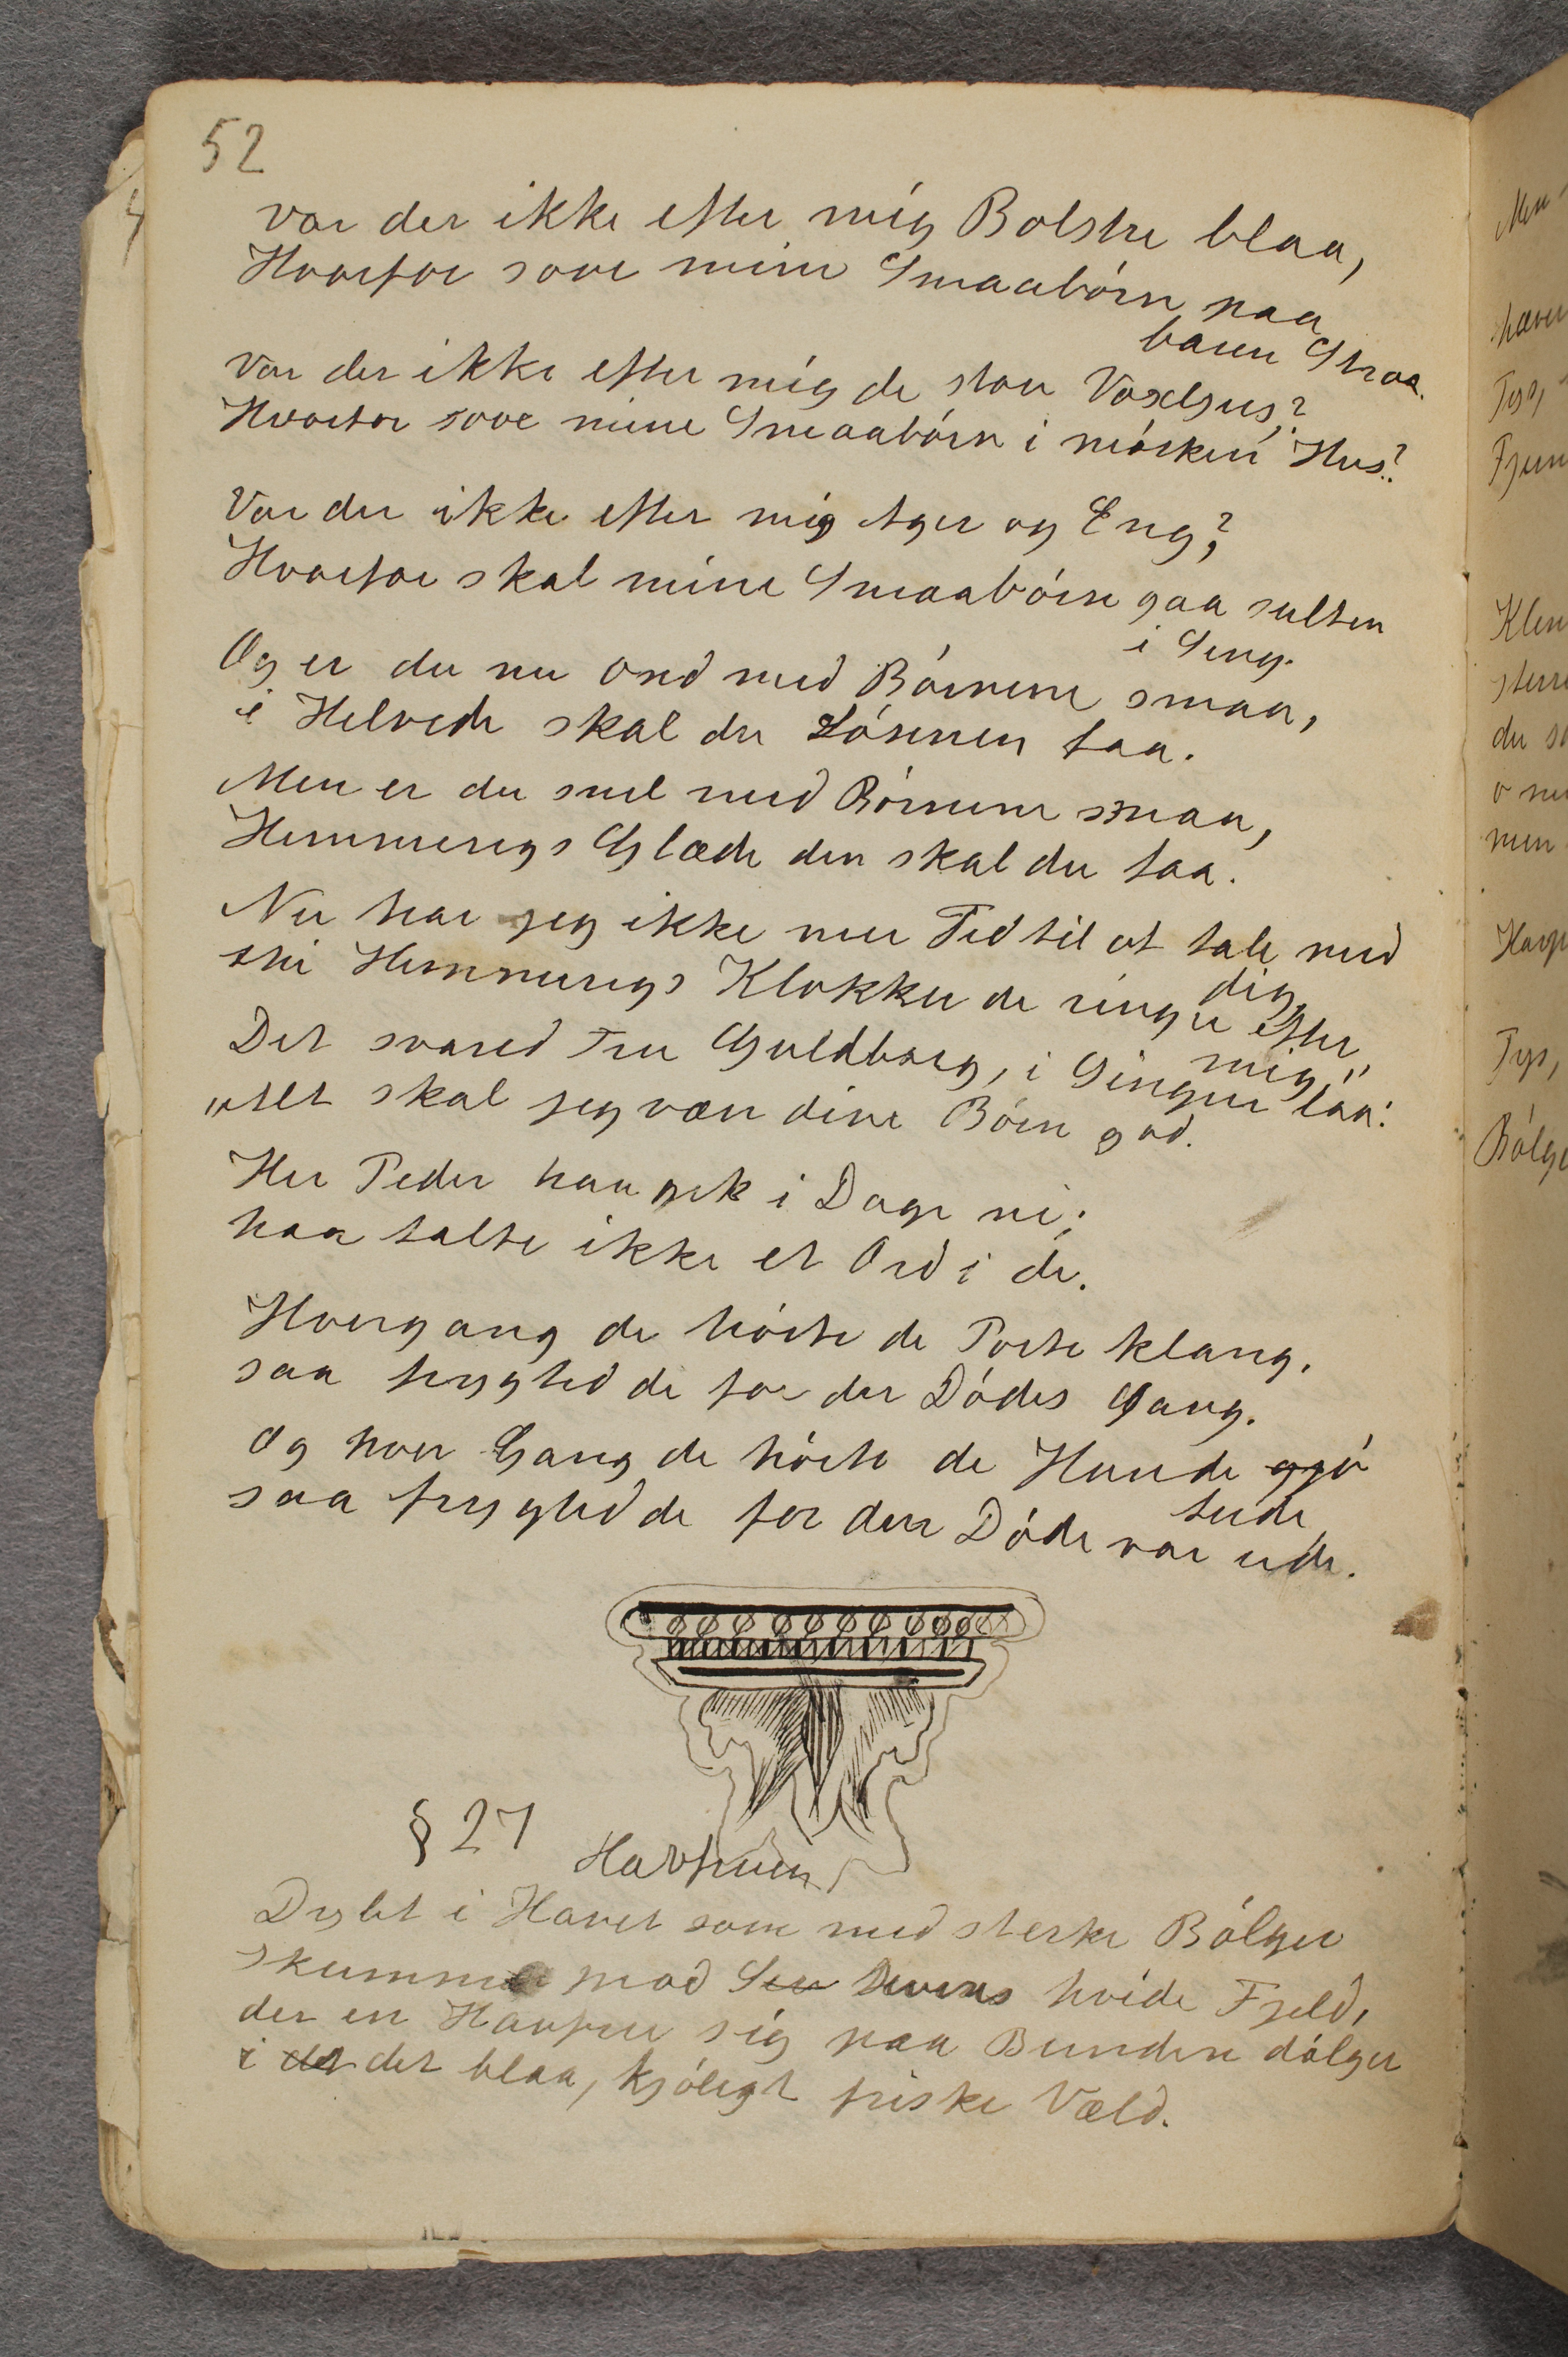 52
var der ikke efter mig Bolstre blaa,
Hvorfor sove mine Smaabórn paa
baren Straa.
Var der ikke efter mig de store Voxljus?
Hvorfor sove mine Smaabórn i mórken Hus?
Var der ikke efter mig Ager og Eng?
Hvorfor skal mine Smaabórn gaa sulten
i Seng.
Og er du nu ond med Bórnene smaa,
i Helvede skal du Lónnen faa.
Men er du snil med Bórnene smaa,
Himmerigs Glæde den skal du faa.
Nu har jeg ikke mer Tid til at tale med
dig,
thi Himmerigs Klokker de ringer efter
mig,"
Det svared Fru Guldborg, i Sengen laa:
"Alt skal jeg være dine Bórn god.
Her Peder han gik i Dage ni;
han talte ikke et Ord i de.
Hvergang de hórte de Porte klang,
saa frygted de for den Dódes Gang.
Og hver Gang de hórte de Hunde gjó
tude,
saa frygted de for den Dóde var ude.
§ 27
Havfruen
Dybt i Havet som med sterke Bólger
skummer mod Devens hvide Fjeld,
der en Havfru sig paa Bunden dólger
i det det blaa, kjóligt friske Væld.
Men
Tys,
Klin
sterre
du so
men
Tys,
Bólge